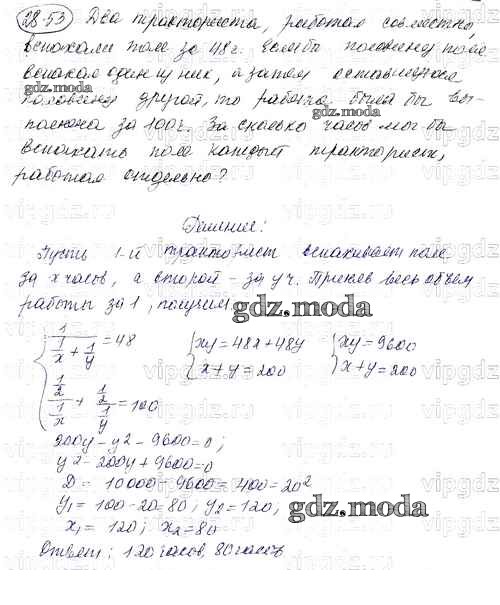 28.53 Два тракториста, работая совместно,
вспахали поле за 48 г. Если бы половину поля
вспахал один из них, а затем оставшуюся
gdz.moda
половину другой, то работа была бы вы-
gdz.moda
полнена за 100 г. За сколько часов мог бы
вспахать поле каждый тракторист,
работая отдельно?
Решение:
Пусть 1-й тракторист вспахивает поле
за x часов, а второй - за y ч. Приняв весь объём
работы за 1, получим
gdz.moda
{ 1/(1/x + 1/y) = 48 { xy = 48x + 48y { xy = 9600
{ (1/2)/(1/x) + (1/2)/(1/y) = 100 { x + y = 200 { x + y = 200
200y - y² - 9600 = 0;
y² - 200y + 9600 = 0
D = 10000 - 9600 = 400 = 20²
y₁ = 100 - 20 = 80; y₂ = 120;
gdz.moda
x₁ = 120; x₂ = 80
Ответ: 120 часов, 80 часов